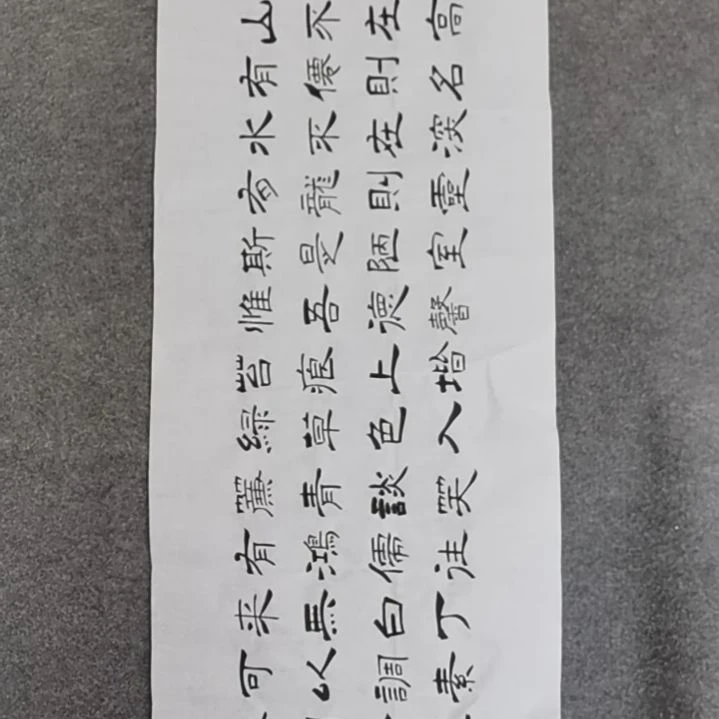 山不在高
有僊則名
水不在深
有龍則靈
斯是陋室
惟吾德馨
苔痕上堦
綠草色入
簾青談笑
有鴻儒往
来無白丁
可以調素